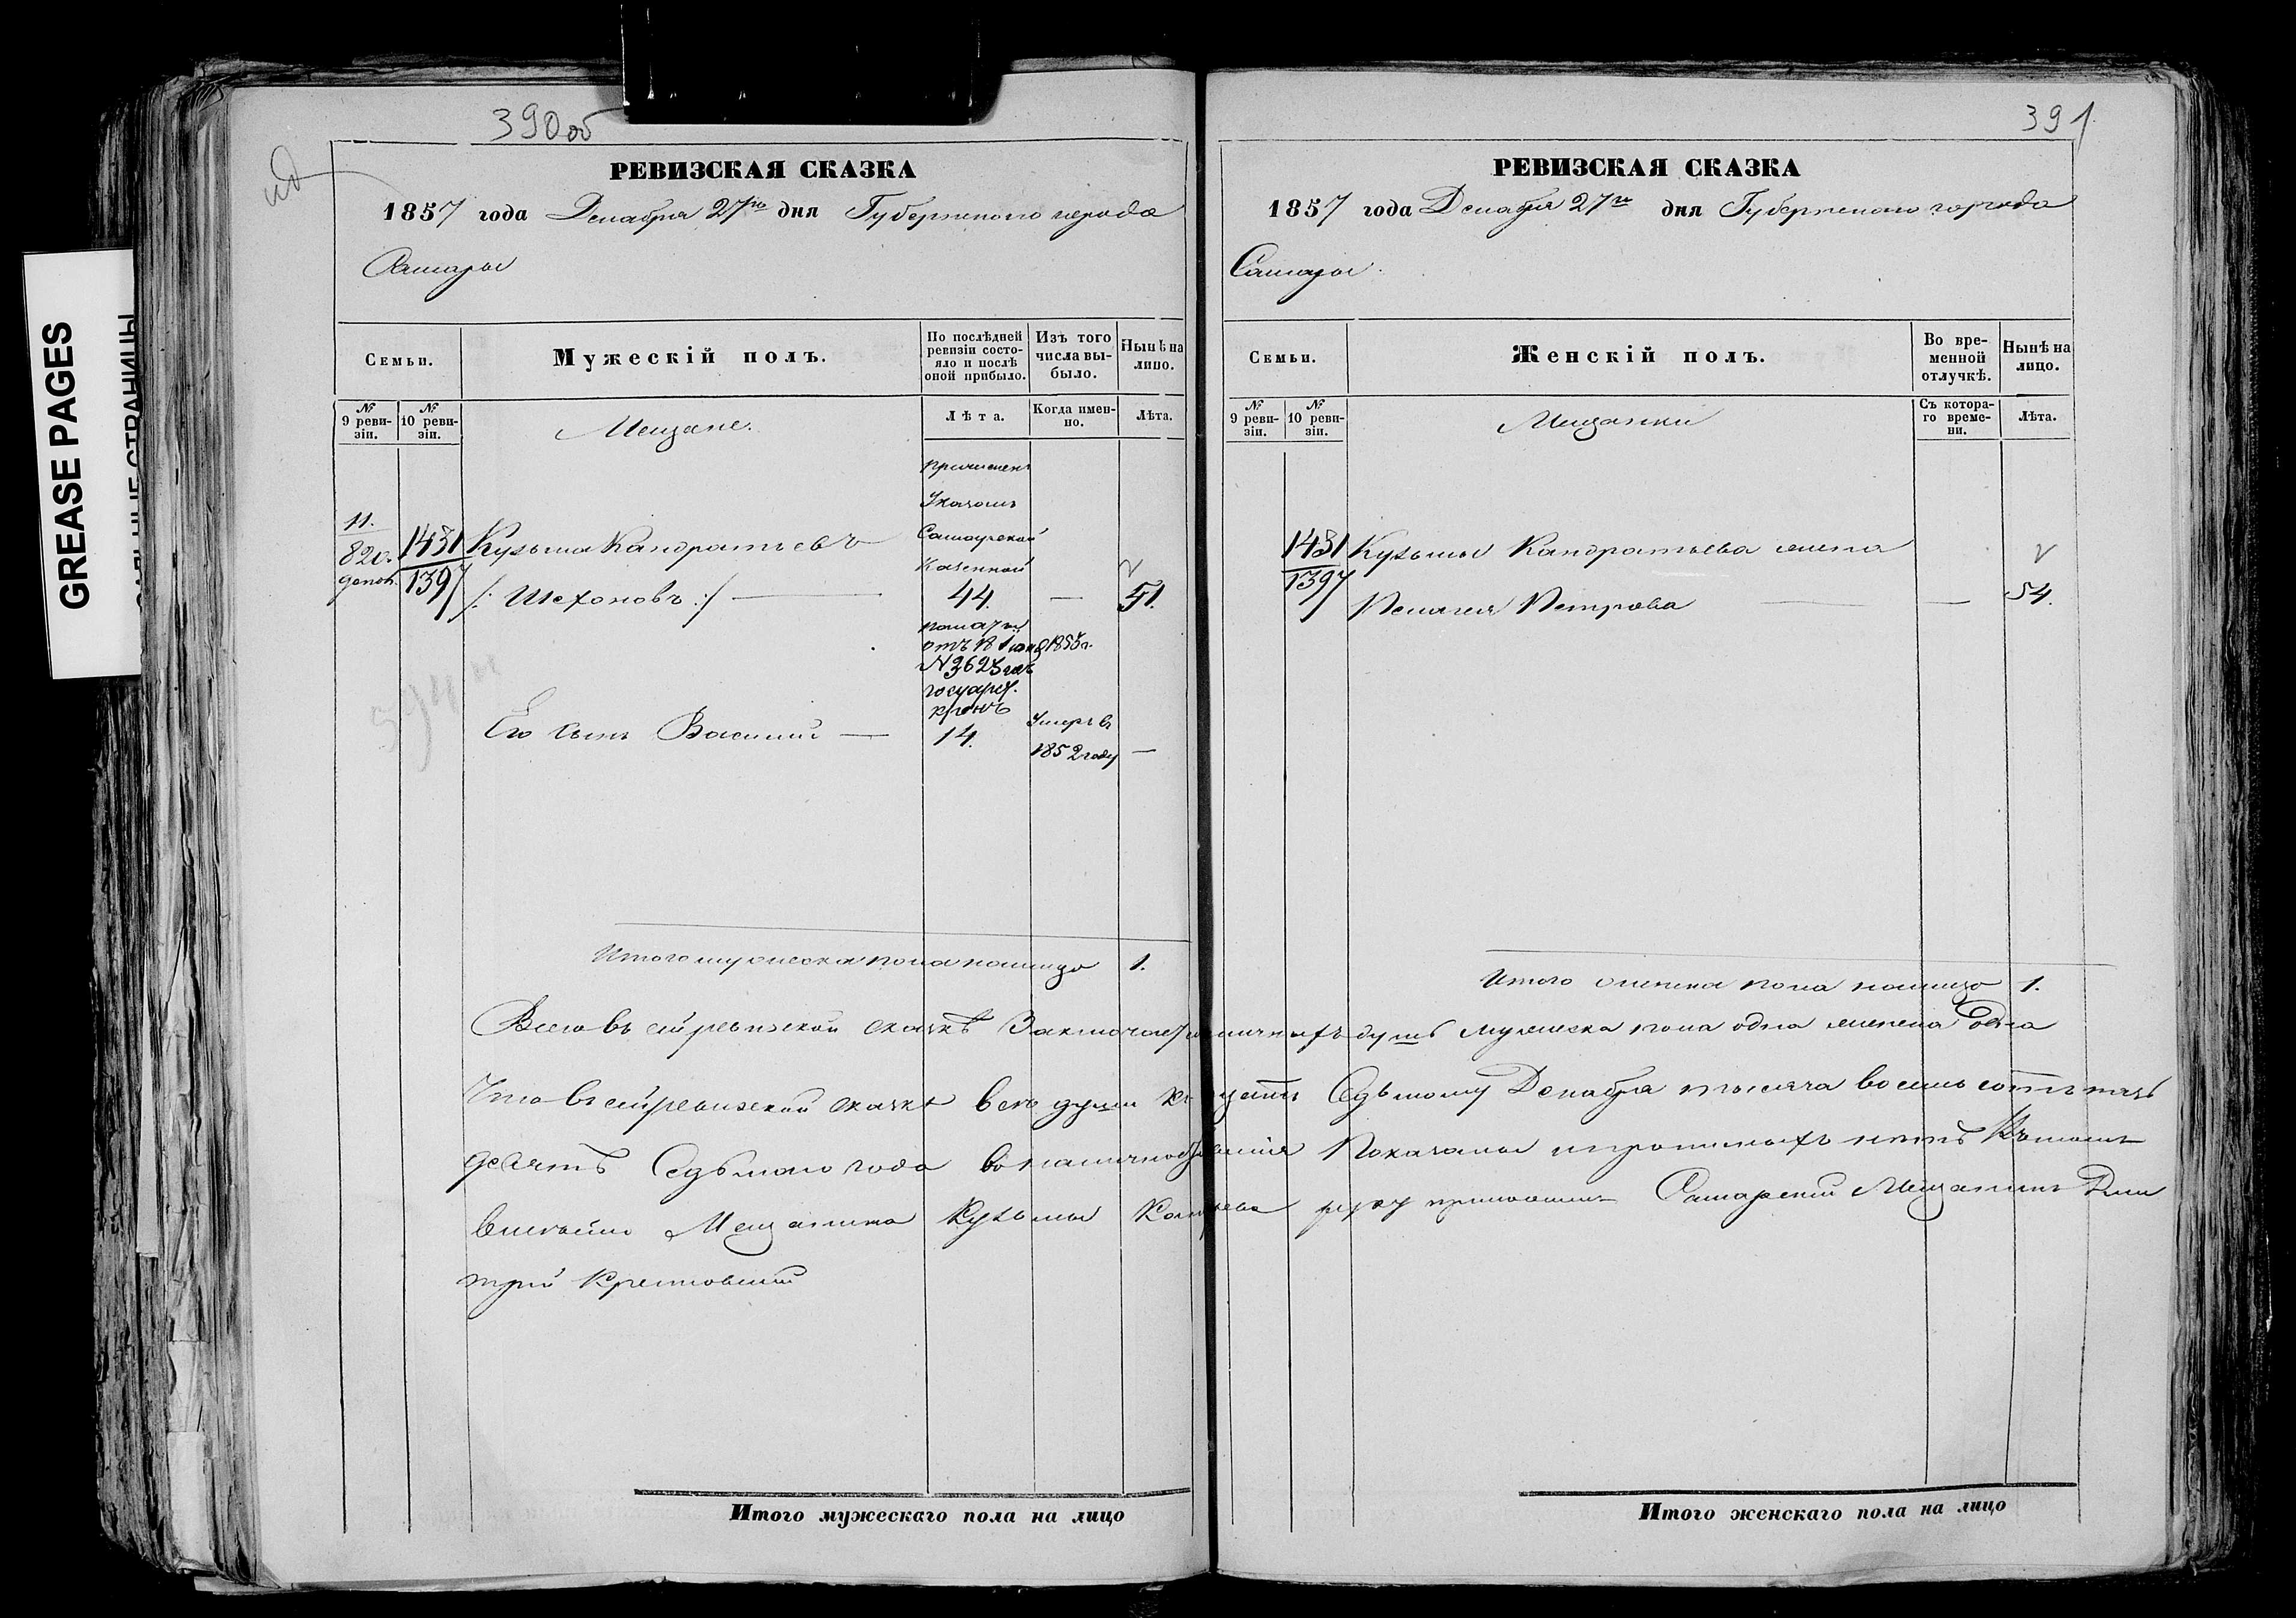 390 об
РЕВИЗСКАЯ СКАЗКА
1857 года Декабря 27го дня Губернского города
Самары
Семьи.
Мужескій полъ.
По послѣдней ревизіи состо-
яло и послѣ
оной прибыло.
Изъ того
числа вы-
было.
Нынѣ на
лицо.
№
9 реви-
зіи.
№
10 реви-
зіи.
Мещане.
Лѣта.
Когда имен-
но.
Лѣта.
причислен
Указомъ
Самарской
Казенной
11.
820.
допол.
1431
1397
Кузьма Кандратьевъ
/: Шехоновъ :/ —
44.
—
51.
палаты
отъ 18 1853г.
№ 3623 изъ
государ.
крестъ
Его сынъ Василий —
14.
Умеръ въ
1852 году
—
Итого мужеска пола налицо 1.
Итого мужескаго пола на лицо
391
РЕВИЗСКАЯ СКАЗКА
1857 года Декабря 27го дня Губернского города
Самары.
Семьи.
Женскій полъ.
Во вре-
менной
отлучкѣ.
Нынѣ на
лицо.
№
9 реви-
зіи.
№
10 реви-
зіи.
Мещанки
Съ котора-
го време-
ни.
Лѣта.
1431
1397
Кузьмы Кандратьева жена
Пелагея Петрова — — 54.
Итого женска пола налицо 1.
Всего въ сей ревизской сказкѣ Заключает наличныхъ душъ мужеска пола одна женска одна
Что въ сей ревизской сказке все души къ Седьмому Декабря тысяча восемь сотъ пять
десятъ Седьмого года Показаны и прописныхъ нетъ Въ томъ
Мещанина Кузьмы руку приложилъ Самарский Мещанинъ Дми
трий
Итого женскаго пола на лицо
GREASE PAGES